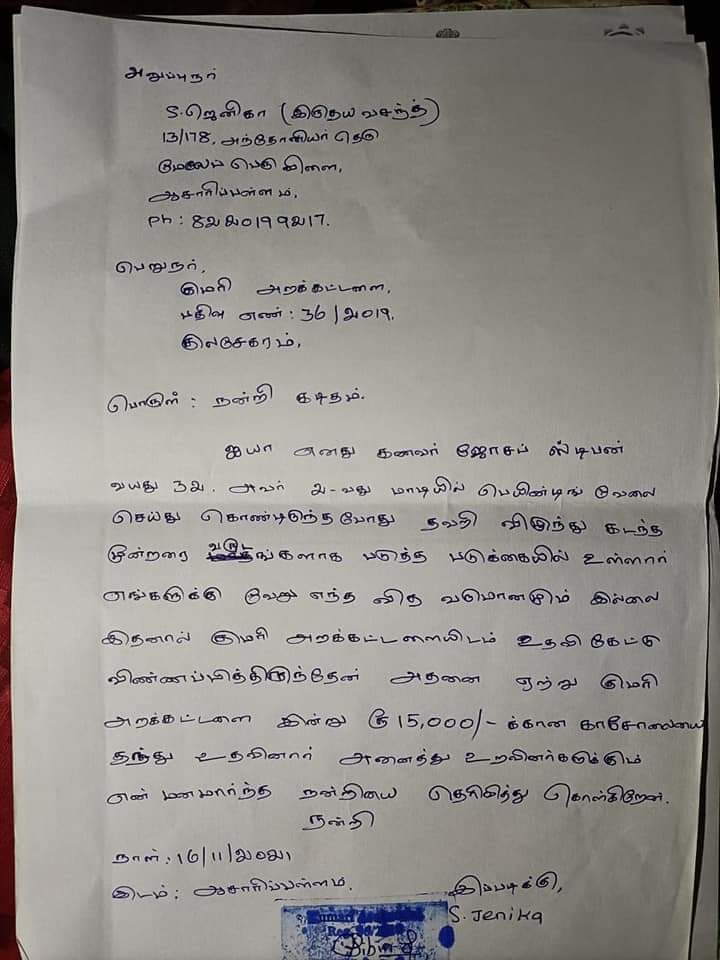 அனுப்புநர்
S.ஜெனிகா (இருதய வசந்த்)
13/178, அந்தோணியர் தெரு
மேலப் பெருவிளை,
ஆசாரிப்பள்ளம்,
Ph: 8220199217.
பெறுநர்,
குமரி அறக்கட்டளை,
பதிவு எண்: 36/2019,
குலசேகரம்,
பொருள்: நன்றி கடிதம்.
ஐயா எனது கணவர் ஜோசப் ஸ்டிபன்
வயது 32. அவர் 2-வது மாடியில் பெயிண்டிங் வேலை
செய்து கொண்டிருந்தபோது தவறி விழுந்து கடந்த
மூன்றரை வருடங்களாக படுத்த படுக்கையில் உள்ளார்
எங்களுக்கு வேறு எந்த வித வருமானமும் இல்லை
இதனால் குமரி அறக்கட்டளையிடம் உதவி கேட்டு
விண்ணப்பித்திருந்தேன் அதனை ஏற்று குமரி
அறக்கட்டளை இன்று ரூ 15,000/- க்கான காசோலையை
தந்து உதவினார் அனைத்து உறவினர்களுக்கும்
என் மனமார்ந்த நன்றியை தெரிவித்து கொள்கிறேன்.
நன்றி
நாள்: 16/11/2021
இடம்: ஆசாரிப்பள்ளம்.
இப்படிக்கு,
S. Jenika
Kumari
Reg.